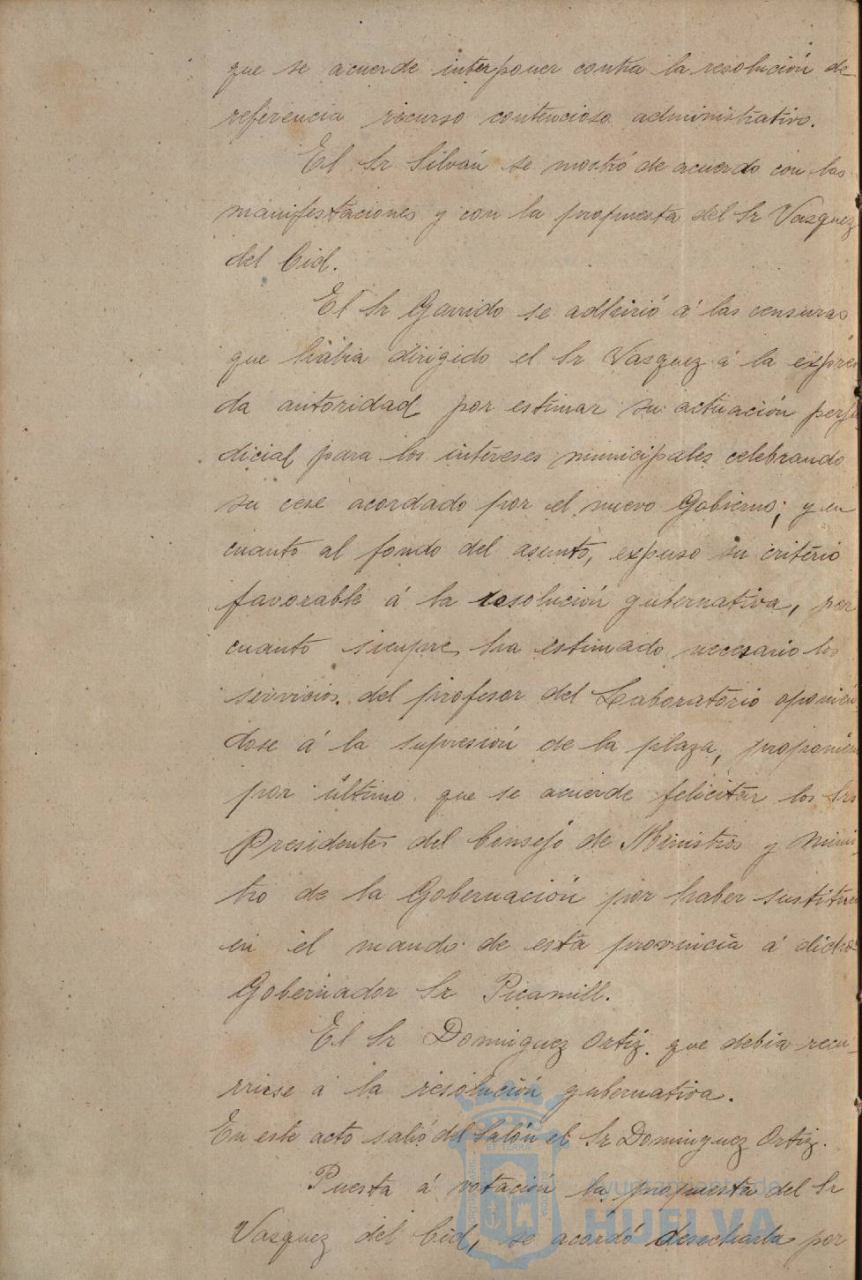 que se acuerde interponer contra la resolución de
referencia recurso contencioso administrativo.
El Sr Silván se mostró de acuerdo con las
manifestaciones y con la propuesta del Sr Vasquez
del Cid.
El Sr Garrido se adhirió á las censuras
que habia dirigido el Sr Vasquez á la expre
da autoridad por estimar su actuación perju
dicial para los intereses municipales celebrando
su cese acordado por el nuevo Gobierno; y en
cuanto al fondo del asunto, expuso su criterio
favorable á la resolución gubernativa, por
cuanto siempre ha estimado necesario los
servicios del profesor del Laboratorio oponien
dose á la supresión de la plaza, proponien
por último que se acuerde felicitar los Sres
Presidentes del Consejo de Ministros y minis
tro de la Gobernación por haber sustituido
en el mando de esta provincia á dicho
Gobernador Sr Picamill.
El Sr Dominguez Ortiz. que debia recu-
rrirse á la resolución gubernativa.
En este acto salió del Salón el Sr Dominguez Ortiz.
Puesta á votación la propuesta del Sr
Vasquez del Cid, se acordó desecharla por
Ayuntamiento de
HUELVA